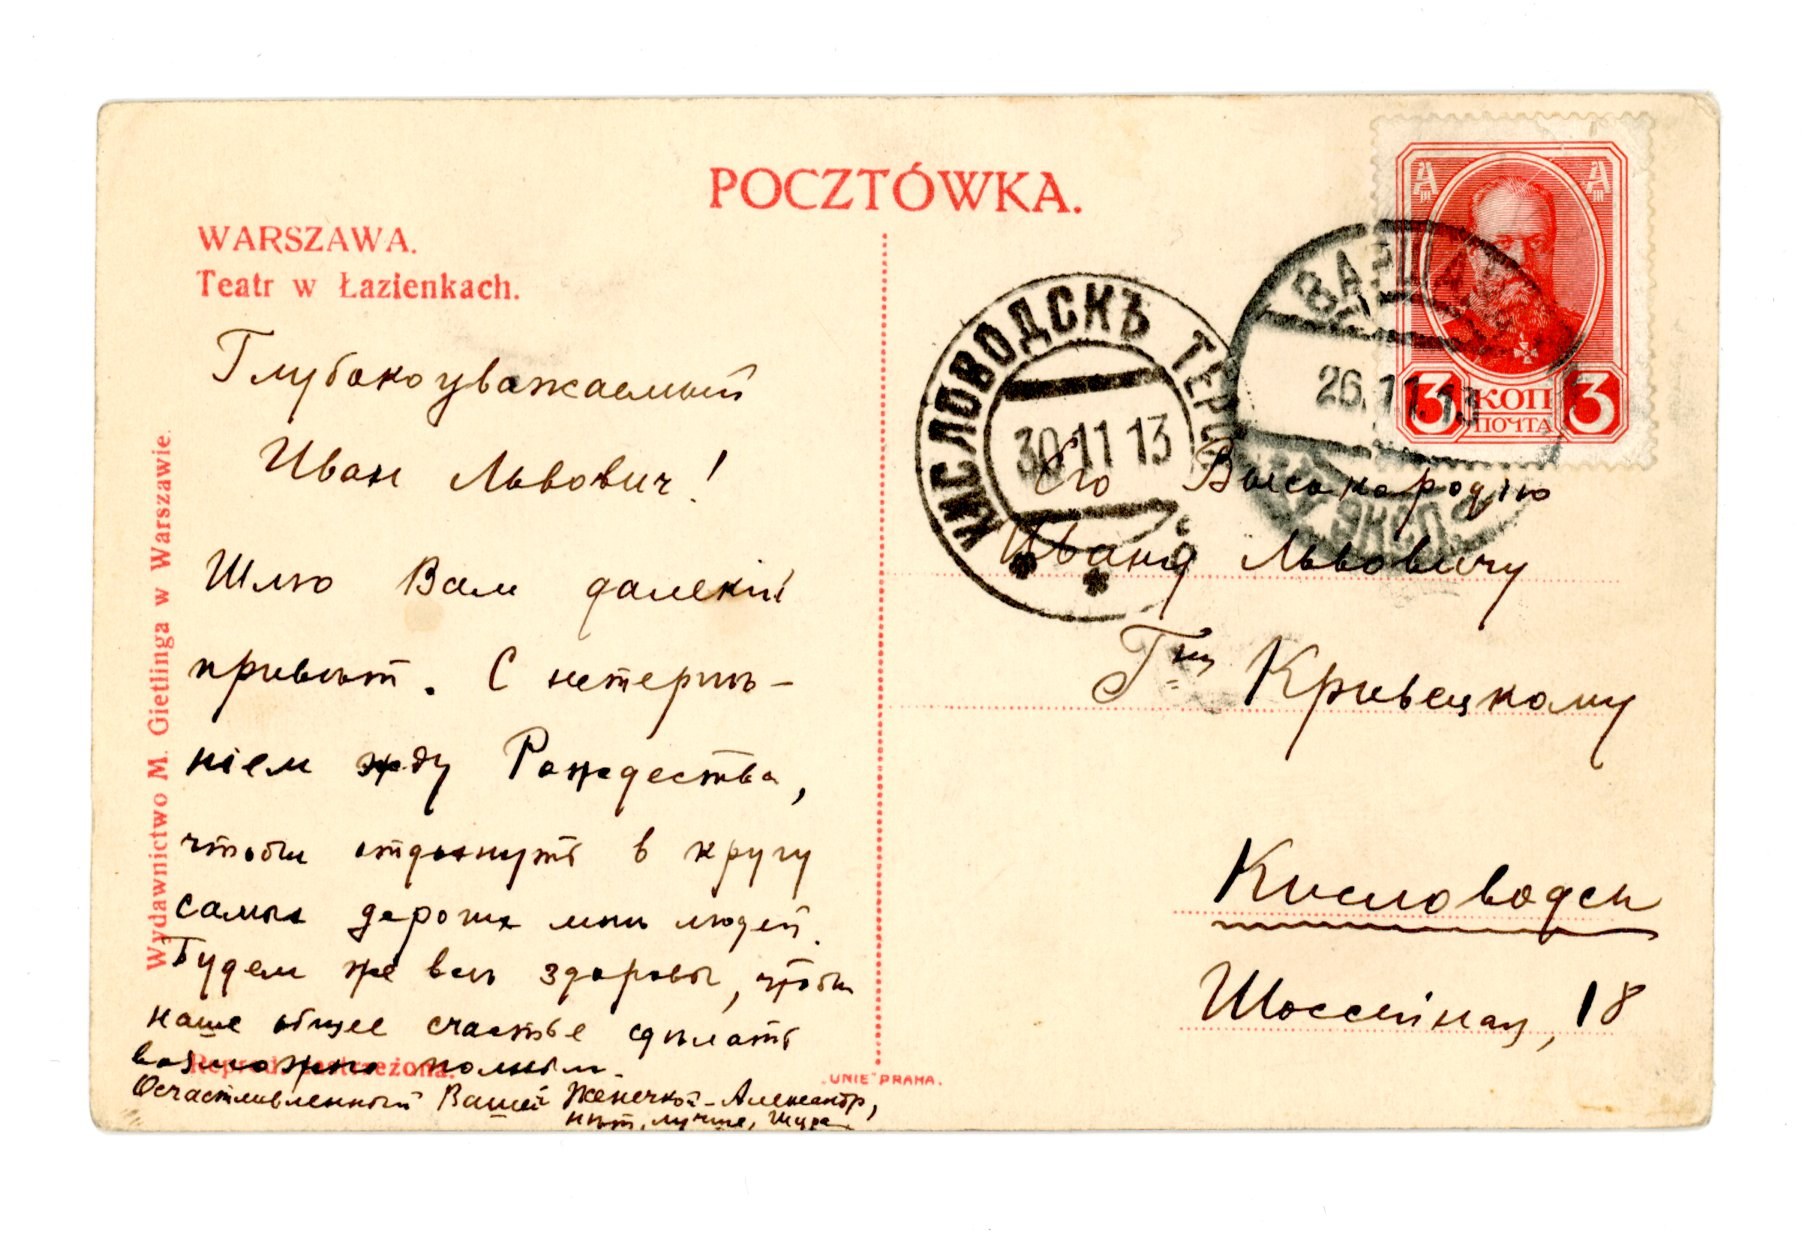 POCZTÓWKA.
WARSZAWA.
Teatr w Łazienkach.
Wydawnictwo M. Gietlinga w Warszawie.
Глубокоуважаемый
Иван Львович!
Шлю Вам далекiй
привѣт. С нетерпѣ-
нiем жду Рождества,
чтобы отдохнуть в кругу
самых дорогих мнѣ людей.
Будем же всѣ здоровы, чтобы
наше общее счастье сдѣлать
возможно полным.
Осчастливленный Вашей Женечкой - Александр,
нѣт, лучше, Шура
UNIE PRAHA.
3 КОП 3
ПОЧТА
ВАРШАВА
26.11.13
ЭКСП.
КИСЛОВОДСКЪ ТЕРС
30 11 13
Его Высокородiю
Ивану Львовичу
Гну Кривецкому
Кисловодск
Шоссейная, 18